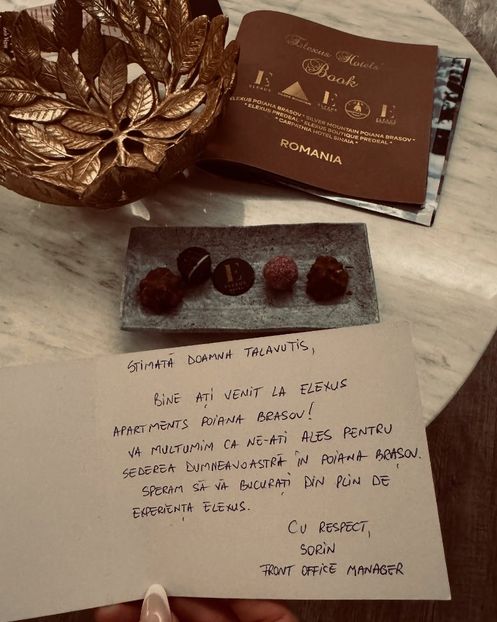 Elexus Hotels'
Book
E E E
ELEXUS POIANA BRASOV * SILVER MOUNTAIN POIANA BRASOV *
* ELEXUS PREDEAL * ELEXUS BOUTIQUE PREDEAL *
* CARPATHIA HOTEL SINAIA *
ROMANIA
E
ELEXUS
STIMATĂ DOAMNA TALAVUTIS,
BINE AȚI VENIT LA ELEXUS
APARTMENTS POIANA BRASOV!
VA MULTUMIM CA NE-ATI ALES PENTRU
SEDEREA DUMNEAVOASTRĂ ÎN POIANA BRAȘOV.
SPERAM SĂ VĂ BUCURAȚI DIN PLIN DE
EXPERIENȚA ELEXUS.
CU RESPECT,
SORIN
FRONT OFFICE MANAGER